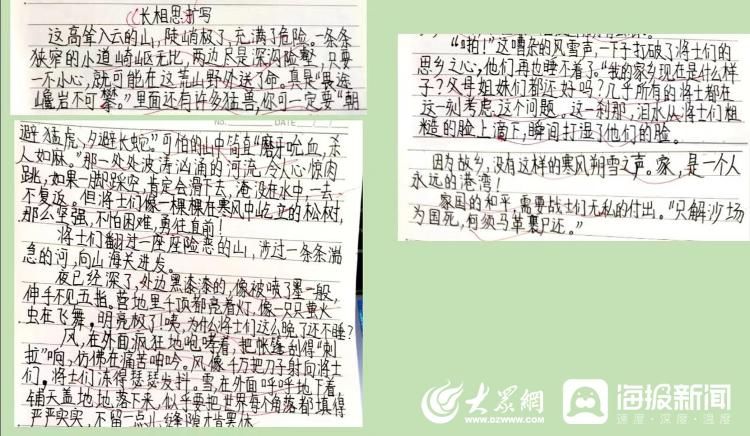 《长相思》扩写
这高耸入云的山,陡峭极了,充满了危险。一条条
狭窄的小道崎岖无比,两边尽是深沟险壑,只要
一不小心,就可能在这荒山野外送了命。真是“畏途
巉岩不可攀。”里面还有许多猛兽,你可一定要“朝
NO. DATE
避猛虎,夕避长蛇。”可怕的山中简直“磨牙吮血,杀
人如麻。”那一处处波涛汹涌的河流,令人心惊肉
跳,如果一脚踩空,肯定会滑下去,淹没在水中,一去
不复返。但将士们像一棵棵在寒风中屹立的松树,
那么坚强,不怕困难,勇往直前!
将士们翻过一座座险恶的山,涉过一条条湍
急的河,向山海关进发。
夜已经深了,外边黑漆漆的,像被喷了墨一般,
伸手不见五指。营地里千顶都亮着灯,像一只只萤火
虫在飞舞。明亮极了!咦,为什么将士们这么晚了还不睡?
风,在外面疯狂地咆哮着,把帐篷刮得“刺
拉”响,仿佛在痛苦呻吟。风像千万把刀子射向将士
们。将士们冻得瑟瑟发抖。雪,在外面呼呼地下着,
铺天盖地地落下来,似乎要把世界每个角落都填得
严严实实,不留一点小缝隙才肯罢休
“啪!”这嘈杂的风雪声,一下子打破了将士们的
思乡之心,他们再也睡不着了。“我的家乡现在是什么样
子?父母姐妹们都还好吗?几乎所有的将士都在
这一刻考虑这个问题。这一刹那,泪水从将士们粗
糙的脸上滴下,瞬间打湿了他们的脸。
因为故乡,没有这样的寒风朔雪之声。家,是一个人
永远的港湾!
家国的和平,需要战士们无私的付出。“只解沙场
为国死,何须马革裹尸还。”
大众网
海报新闻
速度·深度·温度